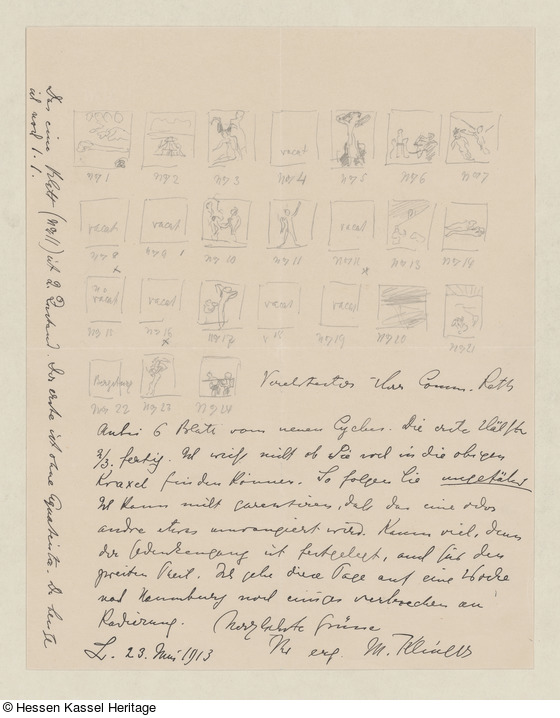 Das eine Blatt (No 11) ist 2. Zustand. Der erste ist ohne Aquatinta. Du
ist noch 1.1.
vacat
No 1 No 2 No 3 No 4 No 5 No 6 No 7
vacat vacat vacat
No 8 No 9 No 10 No 11 No 12 No 13 No 14
vacat vacat vacat vacat
No 15 No 16 No 17 No 18 No 19 No 20 No 21
No 22 No 23 No 24
Verehrtester Herr Comm. Rath
Anbei 6 Blatt vom neuen Cyclus. Die erste Hälfte
2/3. fertig. Ich weiß nicht ob Sie sich in die obigen
Kraxel finden können. So folgen Sie ungefähr
Ich kann nicht garantieren, daß das eine oder
andre etwas umrangiert wird. Kaum viel, denn
der Gedankengang ist festgelegt, auch für den
zweiten Theil. Ich gehe diese Tage auf eine Woche
nach Naumburg noch einiges verbrechen an
Radierung. Herzlichste Grüsse
L. 23. Mai 1913 Ihr erg. M. Klinger
© Hessen Kassel Heritage